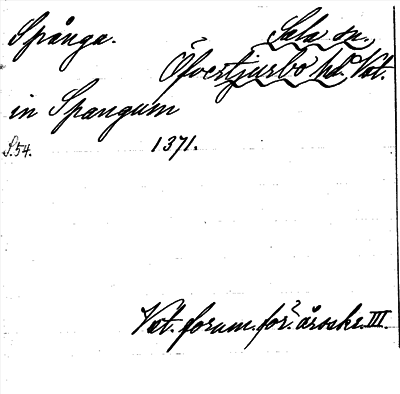 Spånga. Sala sn.
Öfvertjurbo hd. Vst.
in Spangum
S.54. 1371.
Vst. fornm. för:s årsskr. III.